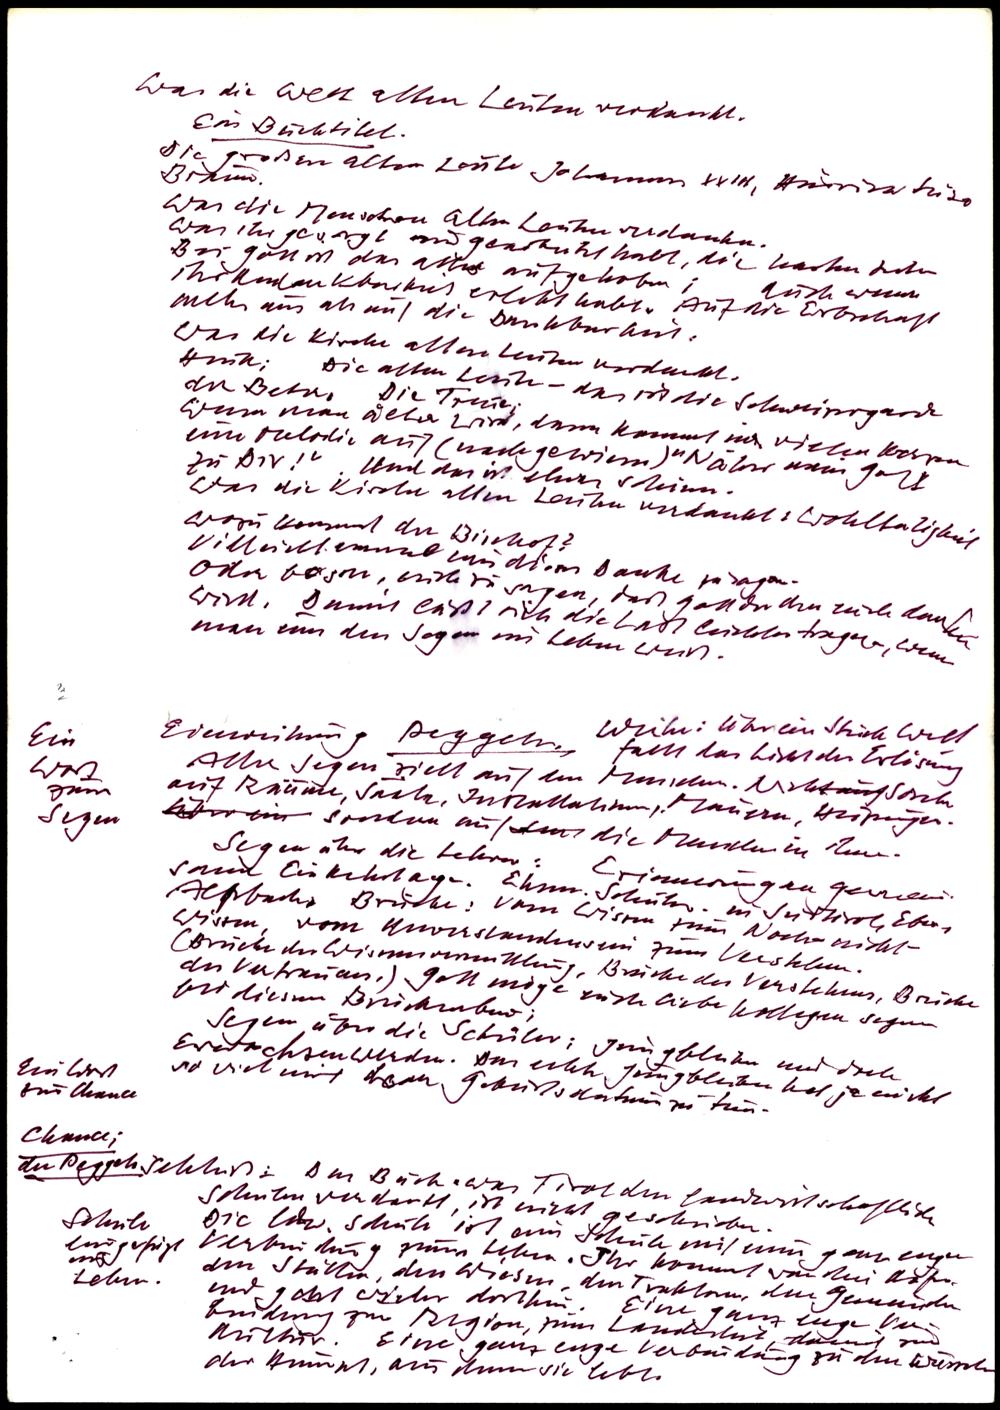 Was die Welt alten Leuten verdankt.
Ein Buchtitel.
Die großen alten Leute Johannes XXIII,
Braun.
Was die Menschen alten Leuten verdanken.
Was ihr gesorgt und gearbeitet habt, die
Bei Gott ist das alles aufgehoben; Auch wenn
ihr Undankbarkeit erlebt habt. Auf die Erbschaft
mehr aus als auf die Dankbarkeit.
Was die Kirche alten Leuten verdankt.
Heute: Die alten Leute – das ist die Schweizergarde
der Beter. Die Treue;
Wenn man älter wird, dann kommt in vielen Herzen
eine Melodie auf (nachgewiesen) "Näher mein Gott
zu Dir!". Und das ist etwas Schönes.
Was die Kirche alten Leuten verdankt: Wohltätigkeit
Wozu kommt der Bischof?
Vielleicht einmal um diesen Danke zu sagen.
Oder besser, euch zu sagen, daß Gott der den euch danken
wird. Damit läßt sich die Last leichter tragen, wenn
man um den Segen im Leben weiß.
Ein
Wort
zum
Segen
Einweihung Reggeln. Weihe: Über ein Stück Welt
fällt das Licht der Erlösung
Aller Segen zielt auf den Menschen. Nicht auf
auf Räume, Säle, Installationen, Mauern, Heizungen.
sondern auf die Menschen in ihnen.
Segen über die Lehrer: Erinnerung an gemein-
same Einkehrtage. Ehem. Schüler. in Südtirol,
Alpbach. Brücke: vom Wissen zum Noch nicht
wissen, vom Unverstandensein zum Verstehen.
(Brücke der Wissensvermittlung, Brücke des Verstehens, Brücke
des Vertrauens.) Gott möge euch liebe Kollegen segnen
bei diesem Brückenbau;
Segen über die Schüler: jung bleiben und doch
Erwachsen werden. Das echte Jungbleiben hat ja nicht
so viel mit dem Geburtsdatum zu tun.
Ein Wort
zur Chance
Chance;
der Schluß: Das Buch was Tirol den landwirtschaftlichen
Schulen verdankt, ist nicht geschrieben.
Schule
eingefügt
ins
Leben.
Die ldw. Schule ist eine Schule mit einer ganz engen
Verbindung zum Leben. Ihr kommt von den Höfen,
den Ställen, den Wiesen, den Traktoren, den Gemeinden
und geht wieder dorthin. Eine ganz enge Ver-
bindung zur Region, zum Landesteil, damit zur
Kultur. Eine ganz enge Verbindung zu den Wurzeln
der Heimat, aus denen sie lebt.